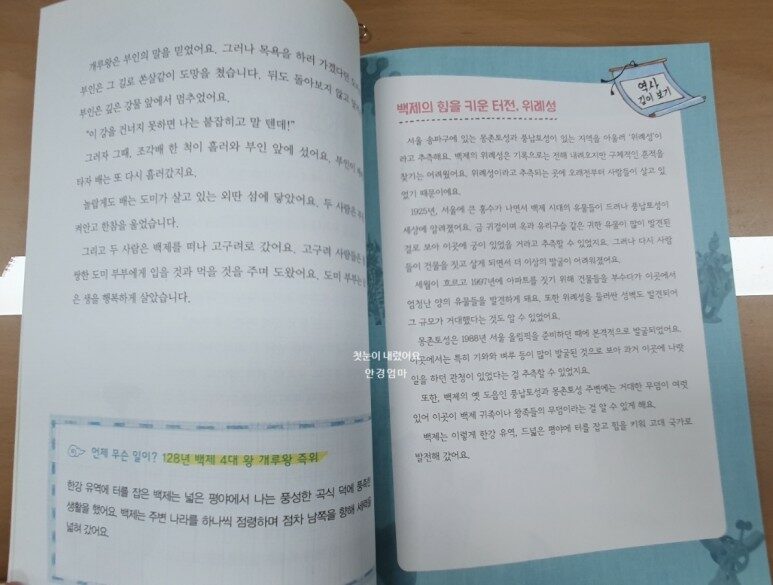 개루왕은 부인의 말을 믿었어요. 그러나 목욕을 하러 가겠다던
부인은 그 길로 쏜살같이 도망을 쳤습니다. 뒤도 돌아보지 않고
부인은 깊은 강물 앞에서 멈추었어요.
"이 강을 건너지 못하면 나는 붙잡히고 말 텐데!"
그러자 그때, 조각배 한 척이 흘러와 부인 앞에 섰어요. 부인이
타자 배는 또 다시 흘러갔지요.
놀랍게도 배는 도미가 살고 있는 외딴 섬에 닿았어요. 두 사람은
껴안고 한참을 울었습니다.
그리고 두 사람은 백제를 떠나 고구려로 갔어요. 고구려 사람들은
도미 부부에게 입을 것과 먹을 것을 주며 도왔어요. 도미 부부는
은 생을 행복하게 살았습니다.
언제 무슨 일이? 128년 백제 4대 왕 개루왕 즉위
한강 유역에 터를 잡은 백제는 넓은 평야에서 나는 풍성한 곡식 덕에
생활을 했어요. 백제는 주변 나라를 하나씩 점령하며 점차 남쪽을 향해 세력을
넓혀 갔어요.
역사
깊이 보기
백제의 힘을 키운 터전, 위례성
서울 송파구에 있는 몽촌토성과 풍납토성이 있는 지역을 아울러 '위례성'이
라고 추측해요. 백제의 위례성은 기록으로는 전해 내려오지만 구체적인 흔적을
찾기는 어려웠어요. 위례성이라고 추측되는 곳에 오래전부터 사람들이 살고 있
었기 때문이에요.
1925년, 서울에 큰 홍수가 나면서 백제 시대의 유물들이 드러나 풍납토성이
세상에 알려졌어요. 금 귀걸이며 옥과 유리구슬 같은 귀한 유물이 많이 발견된
걸로 보아 이곳에 궁이 있었을 거라고 추측할 수 있었지요. 그러나 다시 사람
들이 건물을 짓고 살게 되면서 더 이상의 발굴이 어려워졌어요.
세월이 흐르고 1997년에 아파트를 짓기 위해 건물들을 부수다가 이곳에서
엄청난 양의 유물들을 발견하게 돼요. 또한 위례성을 둘러싼 성벽도 발견되어
그 규모가 거대했다는 것도 알 수 있었어요.
몽촌토성은 1988년 서울 올림픽을 준비하던 때에 본격적으로 발굴되었어요.
이곳에서는 특히 기와와 벼루 등이 많이 발굴된 것으로 보아 과거 이곳에 나랏
일을 하던 관청이 있었다는 걸 추측할 수 있었지요.
또한, 백제의 옛 도읍인 풍납토성과 몽촌토성 주변에는 거대한 무덤이 여럿
있어 이곳이 백제 귀족이나 왕족들의 무덤이라는 걸 알 수 있게 해요.
백제는 이렇게 한강 유역, 드넓은 평야에 터를 잡고 힘을 키워 고대 국가로
발전해 갔어요.
첫눈이 내렸어요
안경엄마